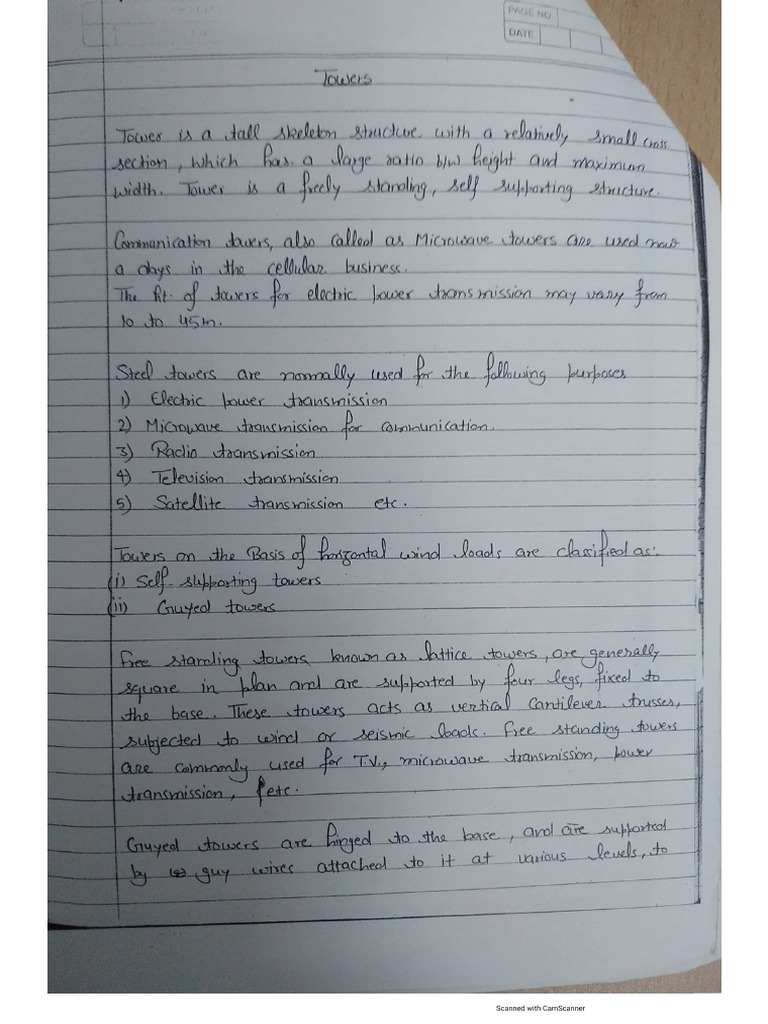 PAGE NO
DATE
Towers
Tower is a tall skeleton structure with a relatively small cross
section, which has a large ratio b/w height and maximum
width. Tower is a freely standing, self supporting structure.
Communication towers, also called as Microwave towers are used now
a days in the cellular business.
The ht. of towers for electric power transmission may vary from
10 to 45m.
Steel towers are normally used for the following purposes
1) Electric power transmission
2) Microwave transmission for communication.
3) Radio transmission
4) Television transmission
5) Satellite transmission etc.
Towers on the Basis of horizontal wind loads are classified as:
(i) Self-supporting towers
(ii) Guyed towers
Free standing towers known as lattice towers, are generally
square in plan and are supported by four legs, fixed to
the base. These towers acts as vertical cantilever trusses,
subjected to wind or seismic loads. Free standing towers
are commonly used for T.V., microwave transmission, power
transmission, etc.
Guyed towers are hinged to the base, and are supported
by guy wires attached to it at various levels, to
Scanned with CamScanner